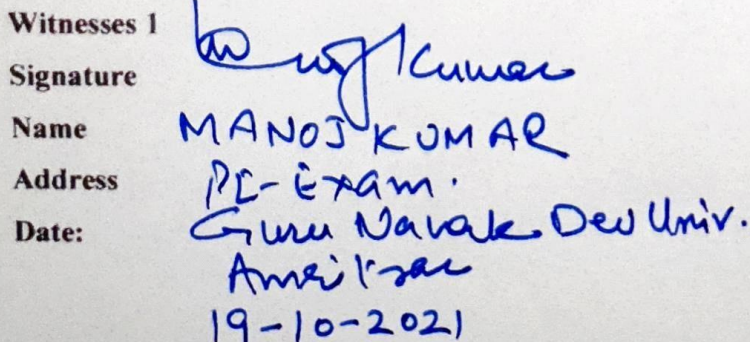 Witnesses 1
Signature Kumar
Name MANOJ KUMAR
Address PI-Exam.
Date: Guru Nanak Dev Univ.
Amritsar
19-10-2021